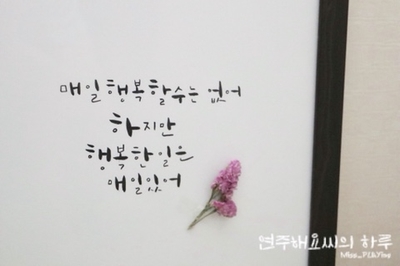 매일 행복할 수는 없어
하지만
행복한 일은
매일 있어
연주해요씨의 하루
Miss_PLAYing